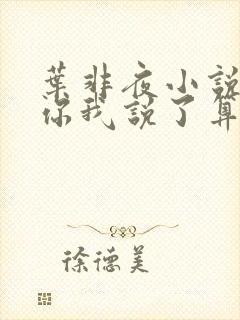 葉非夜小說
你我說了算
徐德美